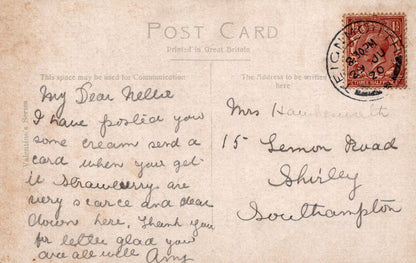 POST CARD
Printed in Great Britain
This space may be used for Communication
The Address to be written here
Valentine's Series
My Dear Nellie
I have posted you
some cream send a
card when you get
it strawberry are
very scarce and dear
down here. Thank you
for letter glad you
are all well Amy
Mrs
15 Lemon Road
Shirley
Southampton